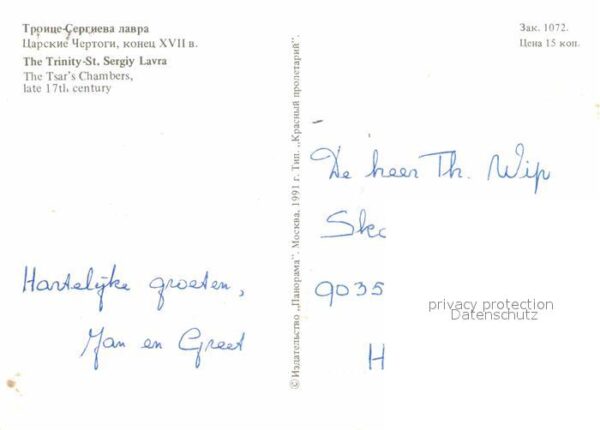 Троице-Сергиева лавра
Царские Чертоги, конец XVII в.
The Trinity-St. Sergiy Lavra
The Tsar's Chambers,
late 17th century
Зак. 1072.
Цена 15 коп.
© Издательство „Панорама”. Москва. 1991 г. Тип. „Красный пролетарий”.
De heer Th. Wip
Skc
9035
H
Hartelijke groeten,
Jan en Greet
privacy protection
Datenschutz